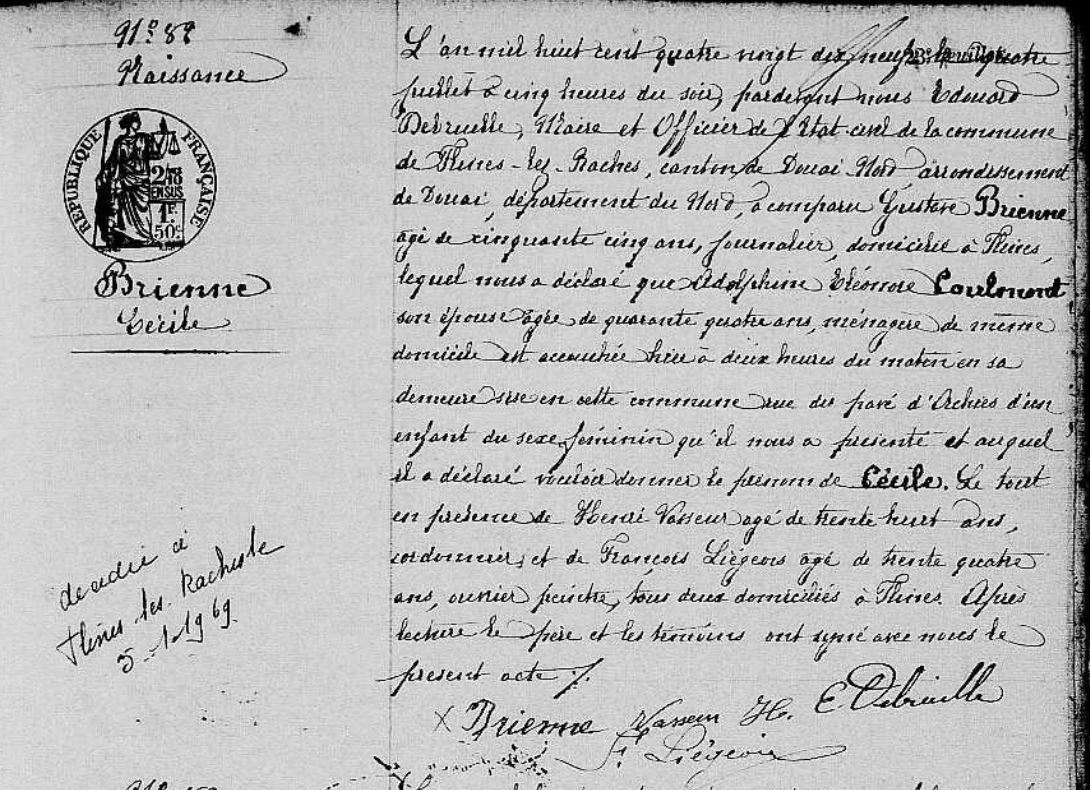 N° 82
Naissance
RÉPUBLIQUE FRANÇAISE
2/10
EN SUS
1F.
50c
Brienne
Cécile
décédée à
Flines les Raches le
5-1-1969.
L'an mil huit cent quatre vingt dix neuf, le quatre
juillet à cinq heures du soir, pardevant nous Edouard
Debruille, Maire et Officier de l'Etat-civil de la commune
de Flines-lez-Raches, canton de Douai-Nord, arrondissement
de Douai, département du Nord, a comparu Gustave Brienne
agé de cinquante cinq ans, journalier, domicilié à Flines,
lequel nous a déclaré que Adolphine Eléonore Coulmont
son épouse agée de quarante quatre ans, ménagère de même
domicile est accouchée hier à deux heures du matin en sa
demeure sise en cette commune rue du pavé d'Orchies d'un
enfant du sexe féminin qu'il nous a présenté et auquel
il a déclaré vouloir donner le prénom de Cécile. Le tout
en présence de Henri Vasseur agé de trente huit ans,
cordonnier, et de François Liégeois agé de trente quatre
ans, ouvrier peintre, tous deux domiciliés à Flines. Après
lecture le père et les témoins ont signé avec nous le
présent acte ./.
X Brienne Vasseur H. E Debruille
F. Liégeois